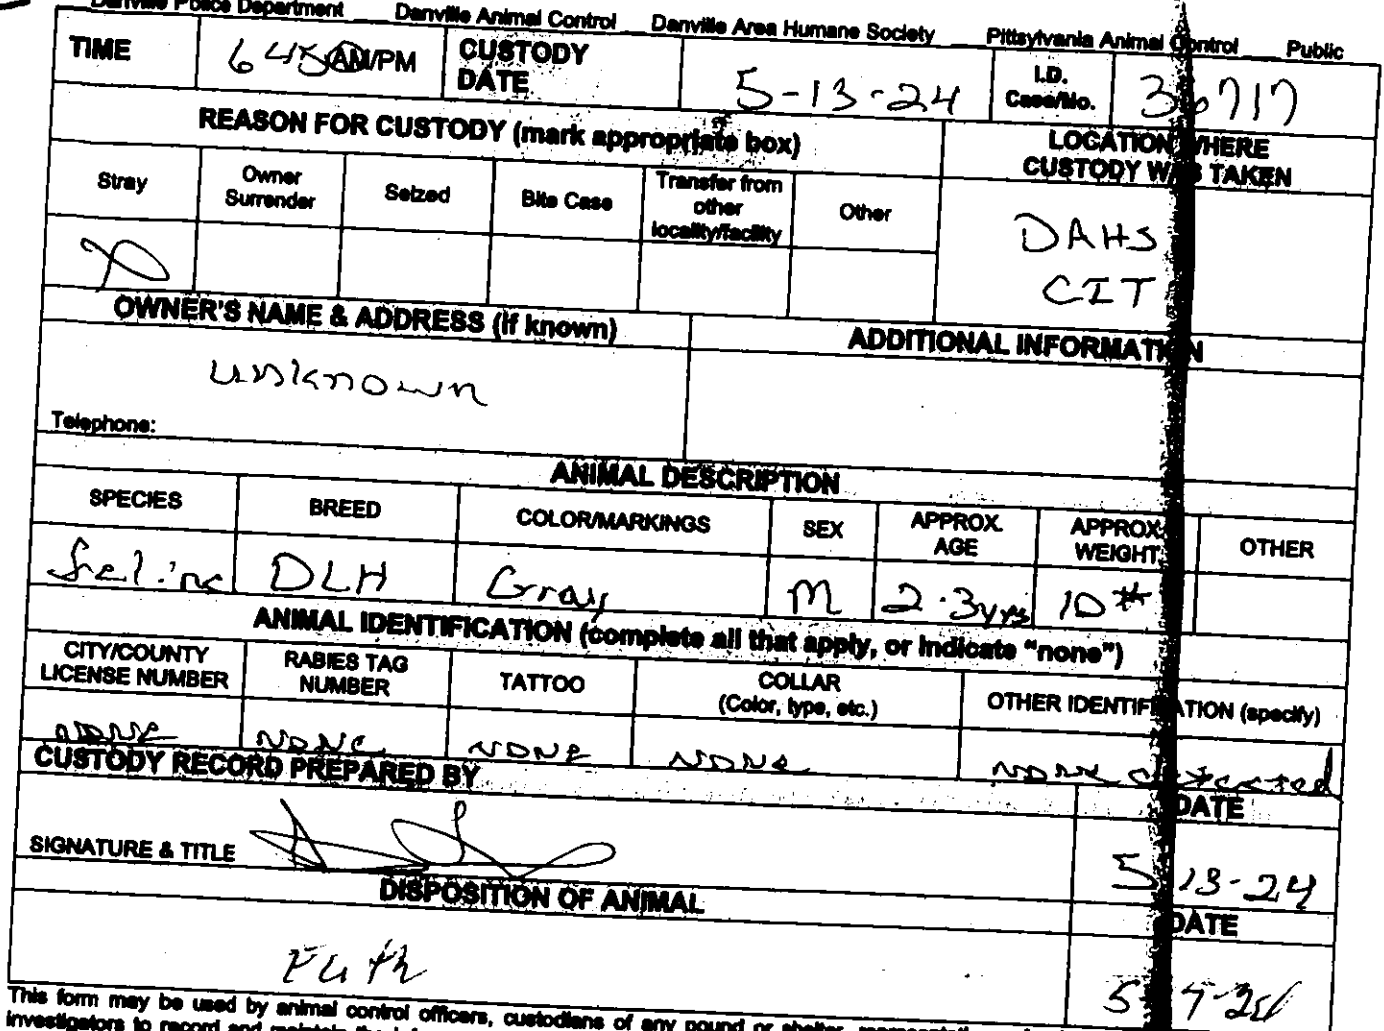 Danville Police Department ___ Danville Animal Control ___ Danville Area Humane Society ___ Pittsylvania Animal Control ___ Public
TIME 645 AM/PM CUSTODY DATE 5-13-24 I.D. Case/No. 36717
REASON FOR CUSTODY (mark appropriate box)
LOCATION WHERE
CUSTODY WAS TAKEN
Stray
Owner
Surrender
Seized
Bite Case
Transfer from
other
locality/facility
Other
DAHS
CIT
OWNER'S NAME & ADDRESS (if known)
ADDITIONAL INFORMATION
unknown
Telephone:
ANIMAL DESCRIPTION
SPECIES BREED COLOR/MARKINGS SEX APPROX. AGE APPROX. WEIGHT OTHER
feline DLH Gray M 2-3yrs 10#
ANIMAL IDENTIFICATION (complete all that apply, or indicate "none")
CITY/COUNTY
LICENSE NUMBER
RABIES TAG
NUMBER
TATTOO
COLLAR
(Color, type, etc.)
OTHER IDENTIFICATION (specify)
none none none none none detected
CUSTODY RECORD PREPARED BY
DATE
SIGNATURE & TITLE
5 13-24
DISPOSITION OF ANIMAL
DATE
Euth
This form may be used by animal control officers, custodians of any pound or shelter,
investigators to record and maintain